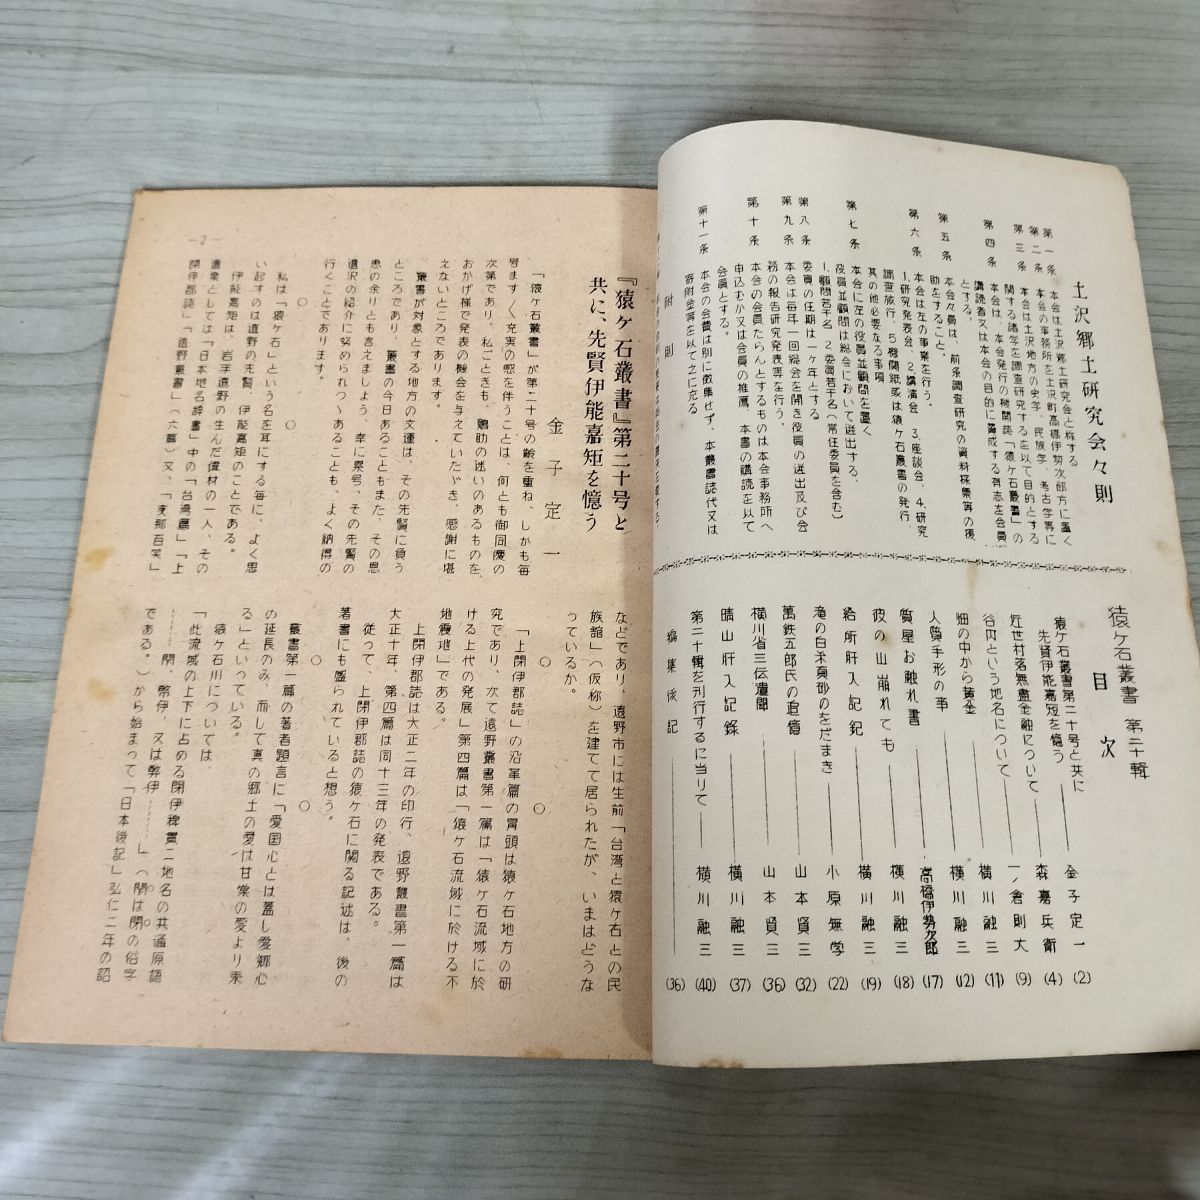 土沢郷土研究会々則
第一条　本会は土沢郷土研究会と称する
第二条　本会の事務所を土沢町高橋伊勢次郎方に置く
第三条　本会は土沢地方の史学、民族学、考古学等に
関する諸学を調査研究するを以て目的とする
第四条　本会は、本会発行の機関誌「猿ヶ石叢書」の
購読者又は本会の目的に賛成する有志を会員
とする。
第五条　本会々員は、前条調査研究の資料採集等の援
助をすること。
第六条　本会は左の事業を行う。
1.研究発表会、2.講演会、3.座談会、4.研究
調査旅行、5.機関紙或は猿ヶ石叢書の発行、
其の他必要なる事項
第七条　本会に左の役員並顧問を置く
役員並顧問は総会において選出する。
1.顧問若干名　2.委員若干名（常任委員を含む）
第八条　委員の任期は一ヶ年とする
第九条　本会は毎年一回総会を開き役員の選出及び会
務の報告研究発表等を行う。
第十条　本会の会員たらんとするものは本会事務所へ
申込むか又は会員の推薦、本書の購読を以て
会員とする。
第十一条　本会の会費は別に徴集せず、本叢書誌代又は
寄附金等を以て之に充る
附則
猿ヶ石叢書　第二十輯
目次
猿ヶ石叢書第二十号と共に
先賢伊能嘉矩を憶う　金子定一　(2)
近世村落無盡金融について　森嘉兵衛　(4)
谷内という地名について　一ノ倉則大　(9)
畑の中から黄金　横川融三　(11)
人質手形の事　横川融三　(12)
質屋お触れ書　高橋伊勢次郎　(17)
彼の山崩れても　横川融三　(18)
給所肝入記　横川融三　(19)
滝の白糸真砂のをだまき　小原無学　(22)
萬鉄五郎氏の追憶　山本賢三　(32)
横川省三伝遺聞　山本賢三　(36)
晴山肝入記録　横川融三　(37)
第二十輯を刊行するに当りて　横川融三　(40)
編集後記　(36)
『猿ヶ石叢書』第二十号と
共に、先賢伊能嘉矩を憶う
金子定一
「猿ヶ石叢書」が第二十号の齢を重ね、しかも毎
号ます〳〵充実の感を伴うことは、何とも御同慶の
次第であり、私ごときも、鶏肋の迷いのあるものを、
おかげ様で発表の機会を与えていたゞき、感謝に堪
えないところであります。
叢書が対象とする地方の文運は、その先賢に負う
ところであり、叢書の今日あることもまた、その恩
恵の余りとも言えましよう。幸に累号、その先賢の
遺沢の紹介に努められつゝあることも、よく納得の
行くことであります。
○　○
私は「猿ヶ石」という名を耳にする毎に、よく思
い起すのは遠野の先賢、伊能嘉矩のことである。
伊能嘉矩は、岩手遠野の生んだ偉材の一人、その
遺業としては「日本地名辞書」中の「台湾篇」「上
閉伊郡誌」「遠野叢書」（六篇）又、「支那百笑」
などであり、遠野市には生前「台湾と猿ヶ石との民
族館」（仮称）を建てて居られたが、いまはどうな
っているか。
○　○
「上閉伊郡誌」の沿革篇の冒頭は猿ヶ石地方の研
究であり、次て遠野叢書第一篇は「猿ヶ石流域に於
ける上代の発展」第四篇は「猿ヶ石流域に於ける不
地震地」である。
上閉伊郡誌は大正二年の印行、遠野叢書第一篇は
大正十年、第四篇は同十三年の発表である。
従って、上閉伊郡誌の猿ヶ石に関る記述は、後の
著書にも盛られていると想う。
○　○
叢書第一篇の著者題言に「愛国心とは蓋し愛郷心
の延長のみ、而して真の郷土の愛は甘棠の愛より来
る」といっている。
猿ヶ石川については、
「此流域の上下に占める閉伊稗貫二地名の共通原語
………閇、弊伊、又は弊伊………」（閇は閉の俗字
である。）から始まって「日本後記」弘仁二年の詔
—2—